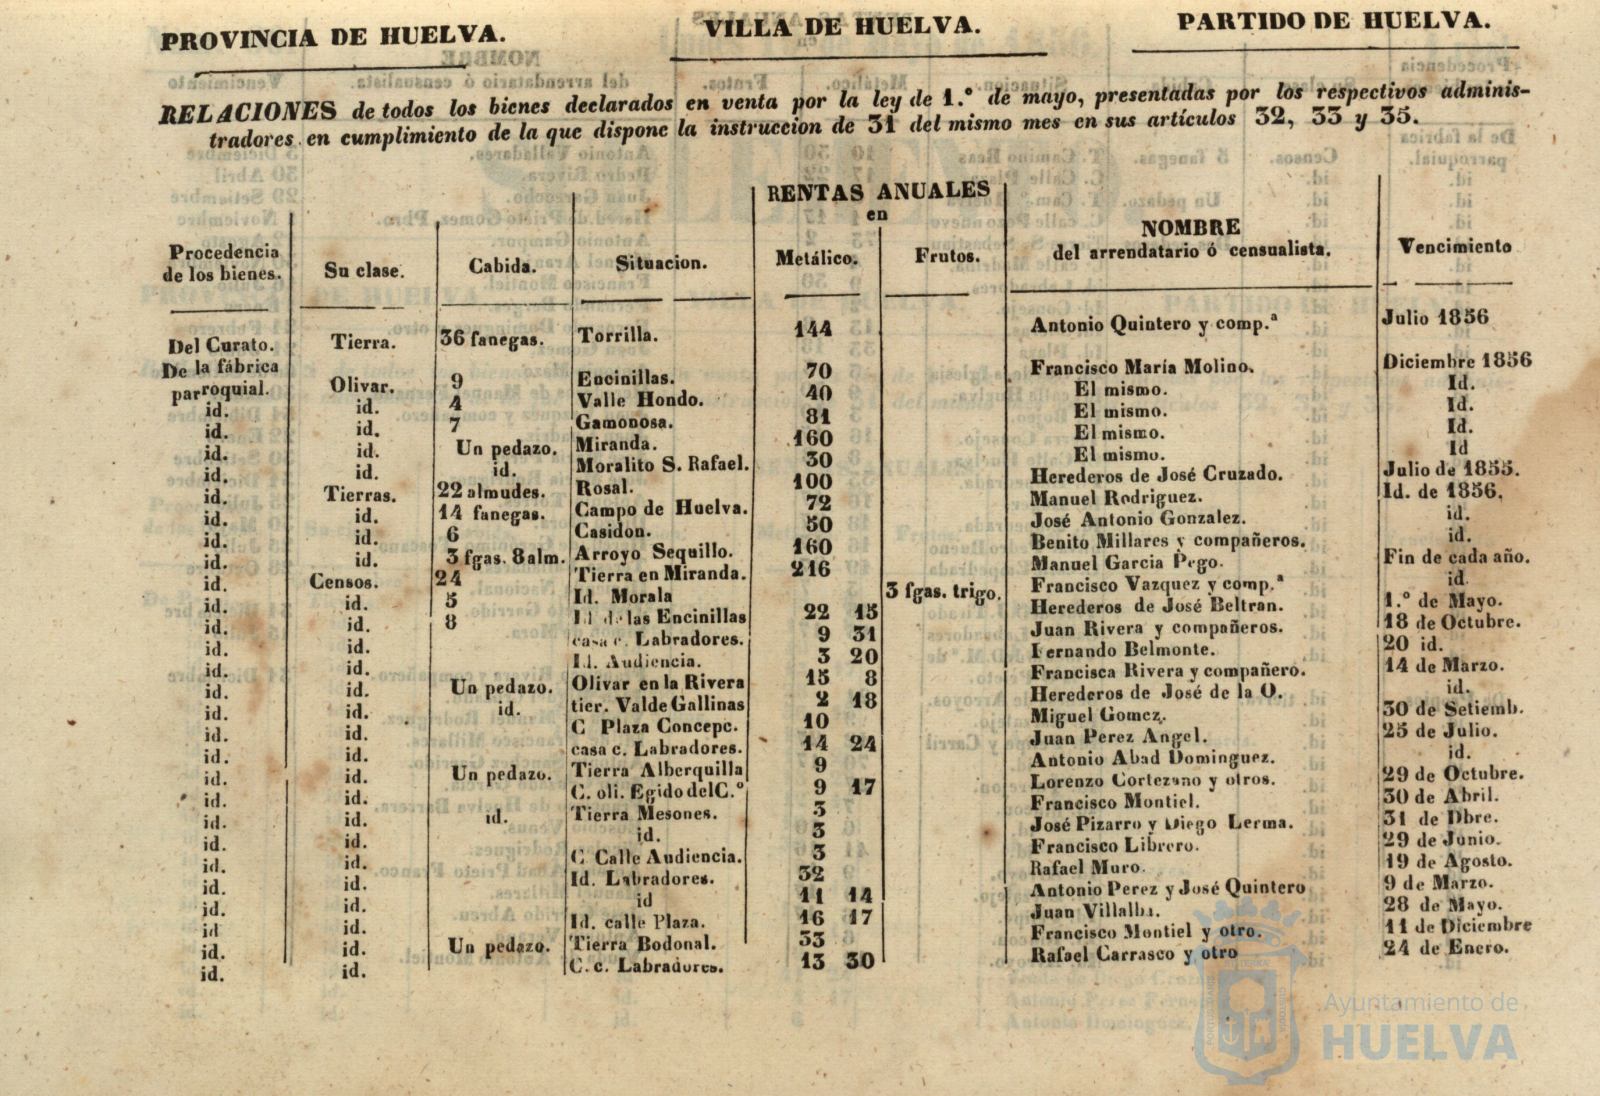 PROVINCIA DE HUELVA. VILLA DE HUELVA. PARTIDO DE HUELVA.
RELACIONES de todos los bienes declarados en venta por la ley de 1.º de mayo, presentadas por los respectivos adminis-
tradores en cumplimiento de la que dispone la instruccion de 31 del mismo mes en sus artículos 32, 33 y 35.
RENTAS ANUALES
en
Procedencia de los bienes. Su clase. Cabida. Situacion. Metálico. Frutos. NOMBRE del arrendatario ó censualista. Vencimiento
Del Curato. Tierra. 36 fanegas. Torrilla. 144 Antonio Quintero y comp.ª Julio 1856
De la fábrica
parroquial. Olivar. 9 Encinillas. 70 Francisco María Molino. Diciembre 1856
id. id. 4 Valle Hondo. 40 El mismo. Id.
id. id. 7 Gamonosa. 81 El mismo. Id.
id. id. Un pedazo. Miranda. 160 El mismo. Id.
id. id. id. Moralito S. Rafael. 30 El mismo. Id
id. Tierras. 22 almudes. Rosal. 100 Herederos de José Cruzado. Julio de 1855.
id. id. 14 fanegas. Campo de Huelva. 72 Manuel Rodriguez. Id. de 1856.
id. id. 6 Casidon. 50 José Antonio Gonzalez. id.
id. id. 3 fgas. 8 alm. Arroyo Sequillo. 160 Benito Millares y compañeros. id.
id. Censos. 24 Tierra en Miranda. 216 Manuel Garcia Pego. Fin de cada año.
id. id. 5 Id. Morala 3 fgas. trigo. Francisco Vazquez y comp.ª id.
id. id. 8 Id de las Encinillas 22 15 Herederos de José Beltran. 1.º de Mayo.
id. id. casa c. Labradores. 9 31 Juan Rivera y compañeros. 18 de Octubre.
id. id. Id. Audiencia. 3 20 Fernando Belmonte. 20 id.
id. id. Un pedazo. Olivar en la Rivera 15 8 Francisca Rivera y compañero. 14 de Marzo.
id. id. id. tier. Valde Gallinas 2 18 Herederos de José de la O. id.
id. id. C Plaza Concepc. 10 Miguel Gomez. 30 de Setiemb.
id. id. casa c. Labradores. 14 24 Juan Perez Angel. 25 de Julio.
id. id. Un pedazo. Tierra Alberquilla 9 Antonio Abad Dominguez. id.
id. id. C. oli. Egido del C.º 9 17 Lorenzo Cortezano y otros. 29 de Octubre.
id. id. id. Tierra Mesones. 3 Francisco Montiel. 30 de Abril.
id. id. id. 3 José Pizarro y Diego Lerma. 31 de Dbre.
id. id. C Calle Audiencia. 3 Francisco Librero. 29 de Junio.
id. id. Id. Labradores. 32 Rafael Muro. 19 de Agosto.
id. id. id 11 14 Antonio Perez y José Quintero 9 de Marzo.
id id. Id. calle Plaza. 16 17 Juan Villalba. 28 de Mayo.
id. id. Un pedazo. Tierra Bodonal. 33 Francisco Montiel y otro. 11 de Diciembre
id. id. C. c. Labradores. 13 30 Rafael Carrasco y otro 24 de Enero.
Ayuntamiento de
HUELVA